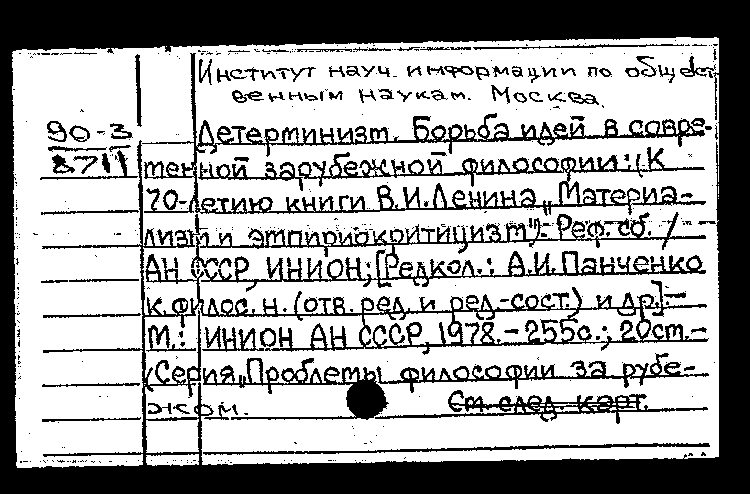 Институт науч. информации по обществ
енным наукам. Москва.
90-3
8711
Детерминизм. Борьба идей в совре-
менной зарубежной философии: (К
70-летию книги В.И.Ленина „Материа-
лизм и эмпириокритицизм"). Реф. сб. /
АН СССР, ИНИОН; [Редкол.: А.И.Панченко
к.филос.н. (отв. ред. и ред.-сост.) и др.].-
М.: ИНИОН АН СССР, 1978.-255с.; 20см.-
(Серия „Проблемы философии за рубе-
жом.
См. след. карт.